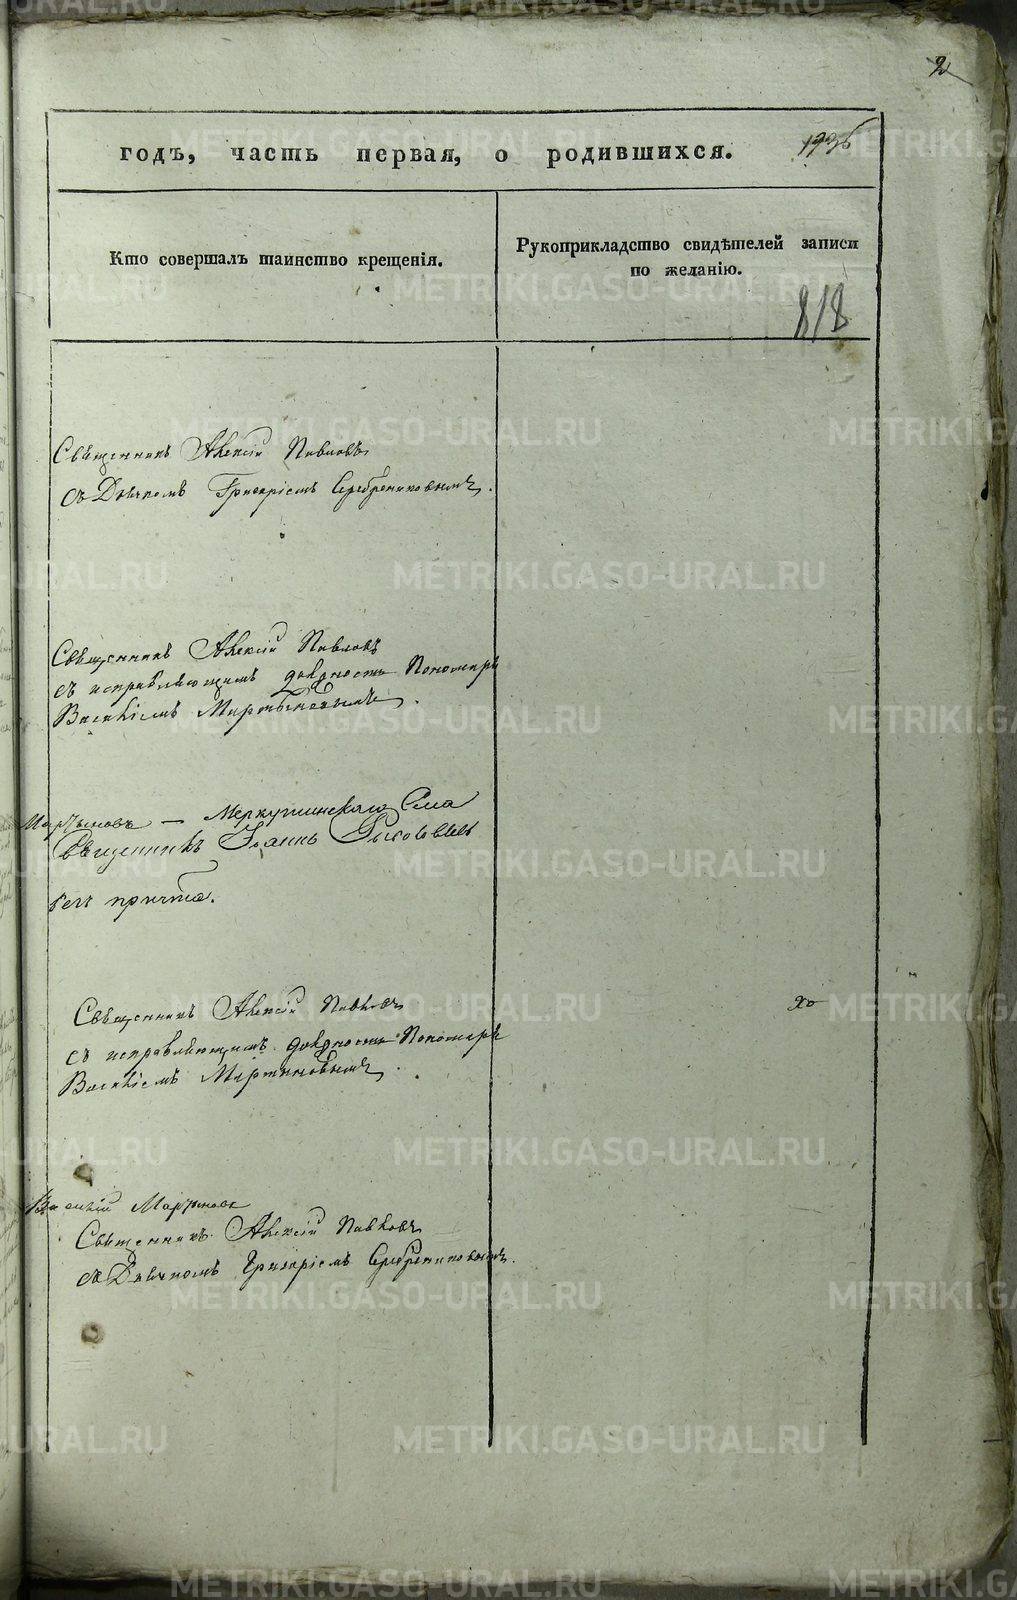 2
годъ, часть первая, о родившихся. 1836
Кто совершалъ таинство крещенія.
Рукоприкладство свидѣтелей записи
по желанію.
818
Священникъ Алексій Павловъ
съ Дьячкомъ Григоріемъ Серебрениковымъ.
Священникъ Алексій Павловъ
съ исправляющимъ должность Пономаря
Василіемъ Мартыновымъ.
Мартыновъ — Меркушинскаго Села
Священникъ Іоаннъ
безъ причта.
Священникъ Алексій Павловъ
съ исправляющимъ должность Пономаря
Василіемъ Мартыновымъ.
Василій Мартыновъ
Священникъ Алексій Павловъ
съ Дьячкомъ Григоріемъ Серебрениковымъ.
METRIKI.GASO-URAL.RU